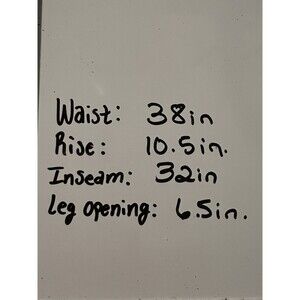 Waist: 38in
Rise: 10.5in.
Inseam: 32in
Leg opening: 6.5in.